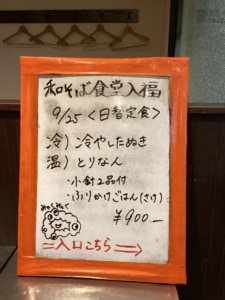 和そば食堂入福
9/25 <日替定食>
冷) 冷やしたぬき
温) とりなん
・小針2品付
・ふりかけごはん(さけ)
¥900-
みゃくみゃく
=入口こちら⇒